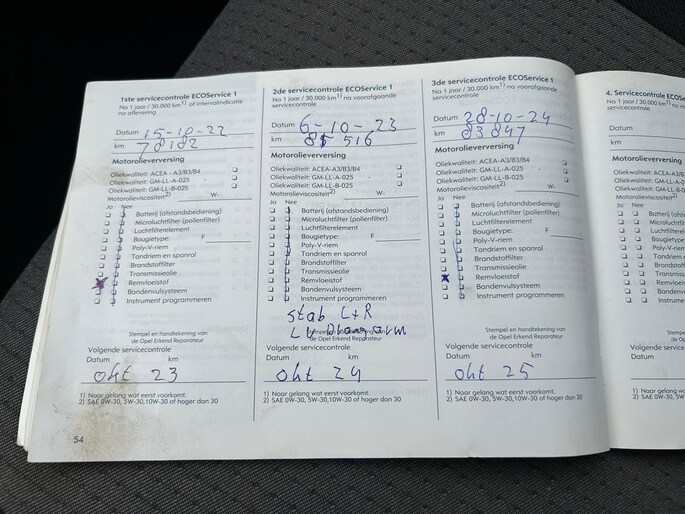 1ste servicecontrole ECOService 1
Na 1 jaar / 30.000 km1) of intervalindicatie
na aflevering
Datum 15-10-22
km 78182
Motorolieverversing
Oliekwaliteit: ACEA - A3/B3/B4
Oliekwaliteit: GM-LL-A-025
Oliekwaliteit: GM-LL-B-025
Motorolieviscositeit2) W-
Ja Nee
Batterij (afstandsbediening)
Microluchtfilter (pollenfilter)
Luchtfilterelement
Bougietype: F
Poly-V-riem
Tandriem en spanrol
Brandstoffilter
Transmissieolie
Remvloeistof
Bandenvulsysteem
Instrument programmeren
Stempel en handtekening van
de Opel Erkend Reparateur
Volgende servicecontrole
Datum km
okt 23
1) Naar gelang wat eerst voorkomt.
2) SAE 0W-30, 5W-30,10W-30 of hoger dan 30
54
2de servicecontrole ECOService 1
Na 1 jaar / 30.000 km1) na voorafgaande
servicecontrole
Datum 6-10-23
km 516
Motorolieverversing
Oliekwaliteit: ACEA-A3/B3/B4
Oliekwaliteit: GM-LL-A-025
Oliekwaliteit: GM-LL-B-025
Motorolieviscositeit2) W-
Ja Nee
Batterij (afstandsbediening)
Microluchtfilter (pollenfilter)
Luchtfilterelement
Bougietype: F
Poly-V-riem
Tandriem en spanrol
Brandstoffilter
Transmissieolie
Remvloeistof
Bandenvulsysteem
Instrument programmeren
Stab L+R
LV Draagarm
de Opel Erkend Reparateur
Volgende servicecontrole
Datum km
okt 24
1) Naar gelang wat eerst voorkomt.
2) SAE 0W-30, 5W-30,10W-30 of hoger dan 30
3de servicecontrole ECOService 1
Na 1 jaar / 30.000 km1) na voorafgaande
servicecontrole
Datum 28-10-24
km 83847
Motorolieverversing
Oliekwaliteit: ACEA-A3/B3/B4
Oliekwaliteit: GM-LL-A-025
Oliekwaliteit: GM-LL-B-025
Motorolieviscositeit2) W-
Ja Nee
Batterij (afstandsbediening)
Microluchtfilter (pollenfilter)
Luchtfilterelement
Bougietype: F
Poly-V-riem
Tandriem en spanrol
Brandstoffilter
Transmissieolie
Remvloeistof
Bandenvulsysteem
Instrument programmeren
Stempel en handtekening van
de Opel Erkend Reparateur
Volgende servicecontrole
Datum km
okt 25
1) Naar gelang wat eerst voorkomt.
2) SAE 0W-30, 5W-30,10W-30 of hoger dan 30
4. Servicecontrole
Na 1 jaar / 30.000
servicecontrole
Datum
km
Motorolieverversing
Oliekwaliteit: ACEA
Oliekwaliteit: GM-LL
Oliekwaliteit: GM-LL
Motorolieviscositeit
Ja Nee
Batterij
Microluch
Luchtfilte
Bougiety
Poly-V-ri
Tandriem
Brandsto
Transmis
Remvloei
Bandenv
Instrumen
Volgende servicecont
Datum
1) Naar gelang wat
2) SAE 0W-30, 5W-3